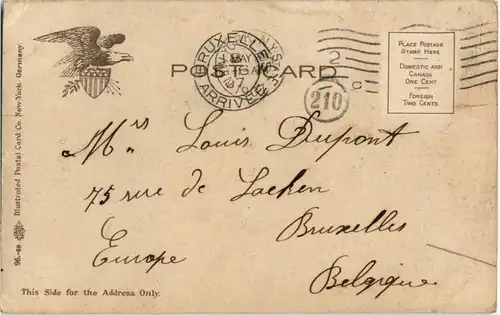 POST CARD
BRUXELLES
ARRIVÉE
210
PLACE POSTAGE
STAMP HERE
DOMESTIC AND
CANADA
ONE CENT
FOREIGN
TWO CENTS
Mrs Louis Dupont
75 rue de Laeken
Bruxelles
Europe
Belgique
This Side for the Address Only.
96-48 Illustrated Postal Card Co. New York: Germany.